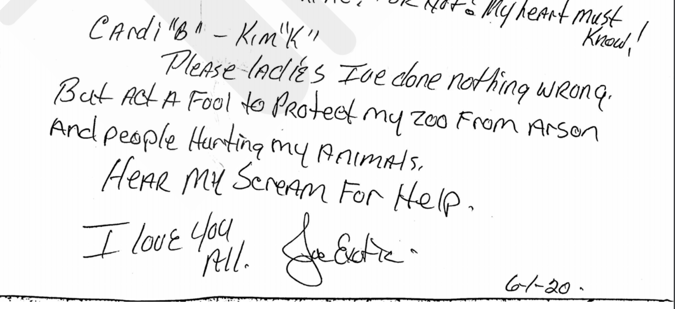 or Not? My heart must
Know!
Cardi "B" - Kim "K"
Please ladies Ive done nothing wrong.
But Act A Fool to Protect my zoo From Arson
And people Hurting my Animals.
Hear My Scream For Help.
I love you
All. Joe Exotic.
6-1-20.